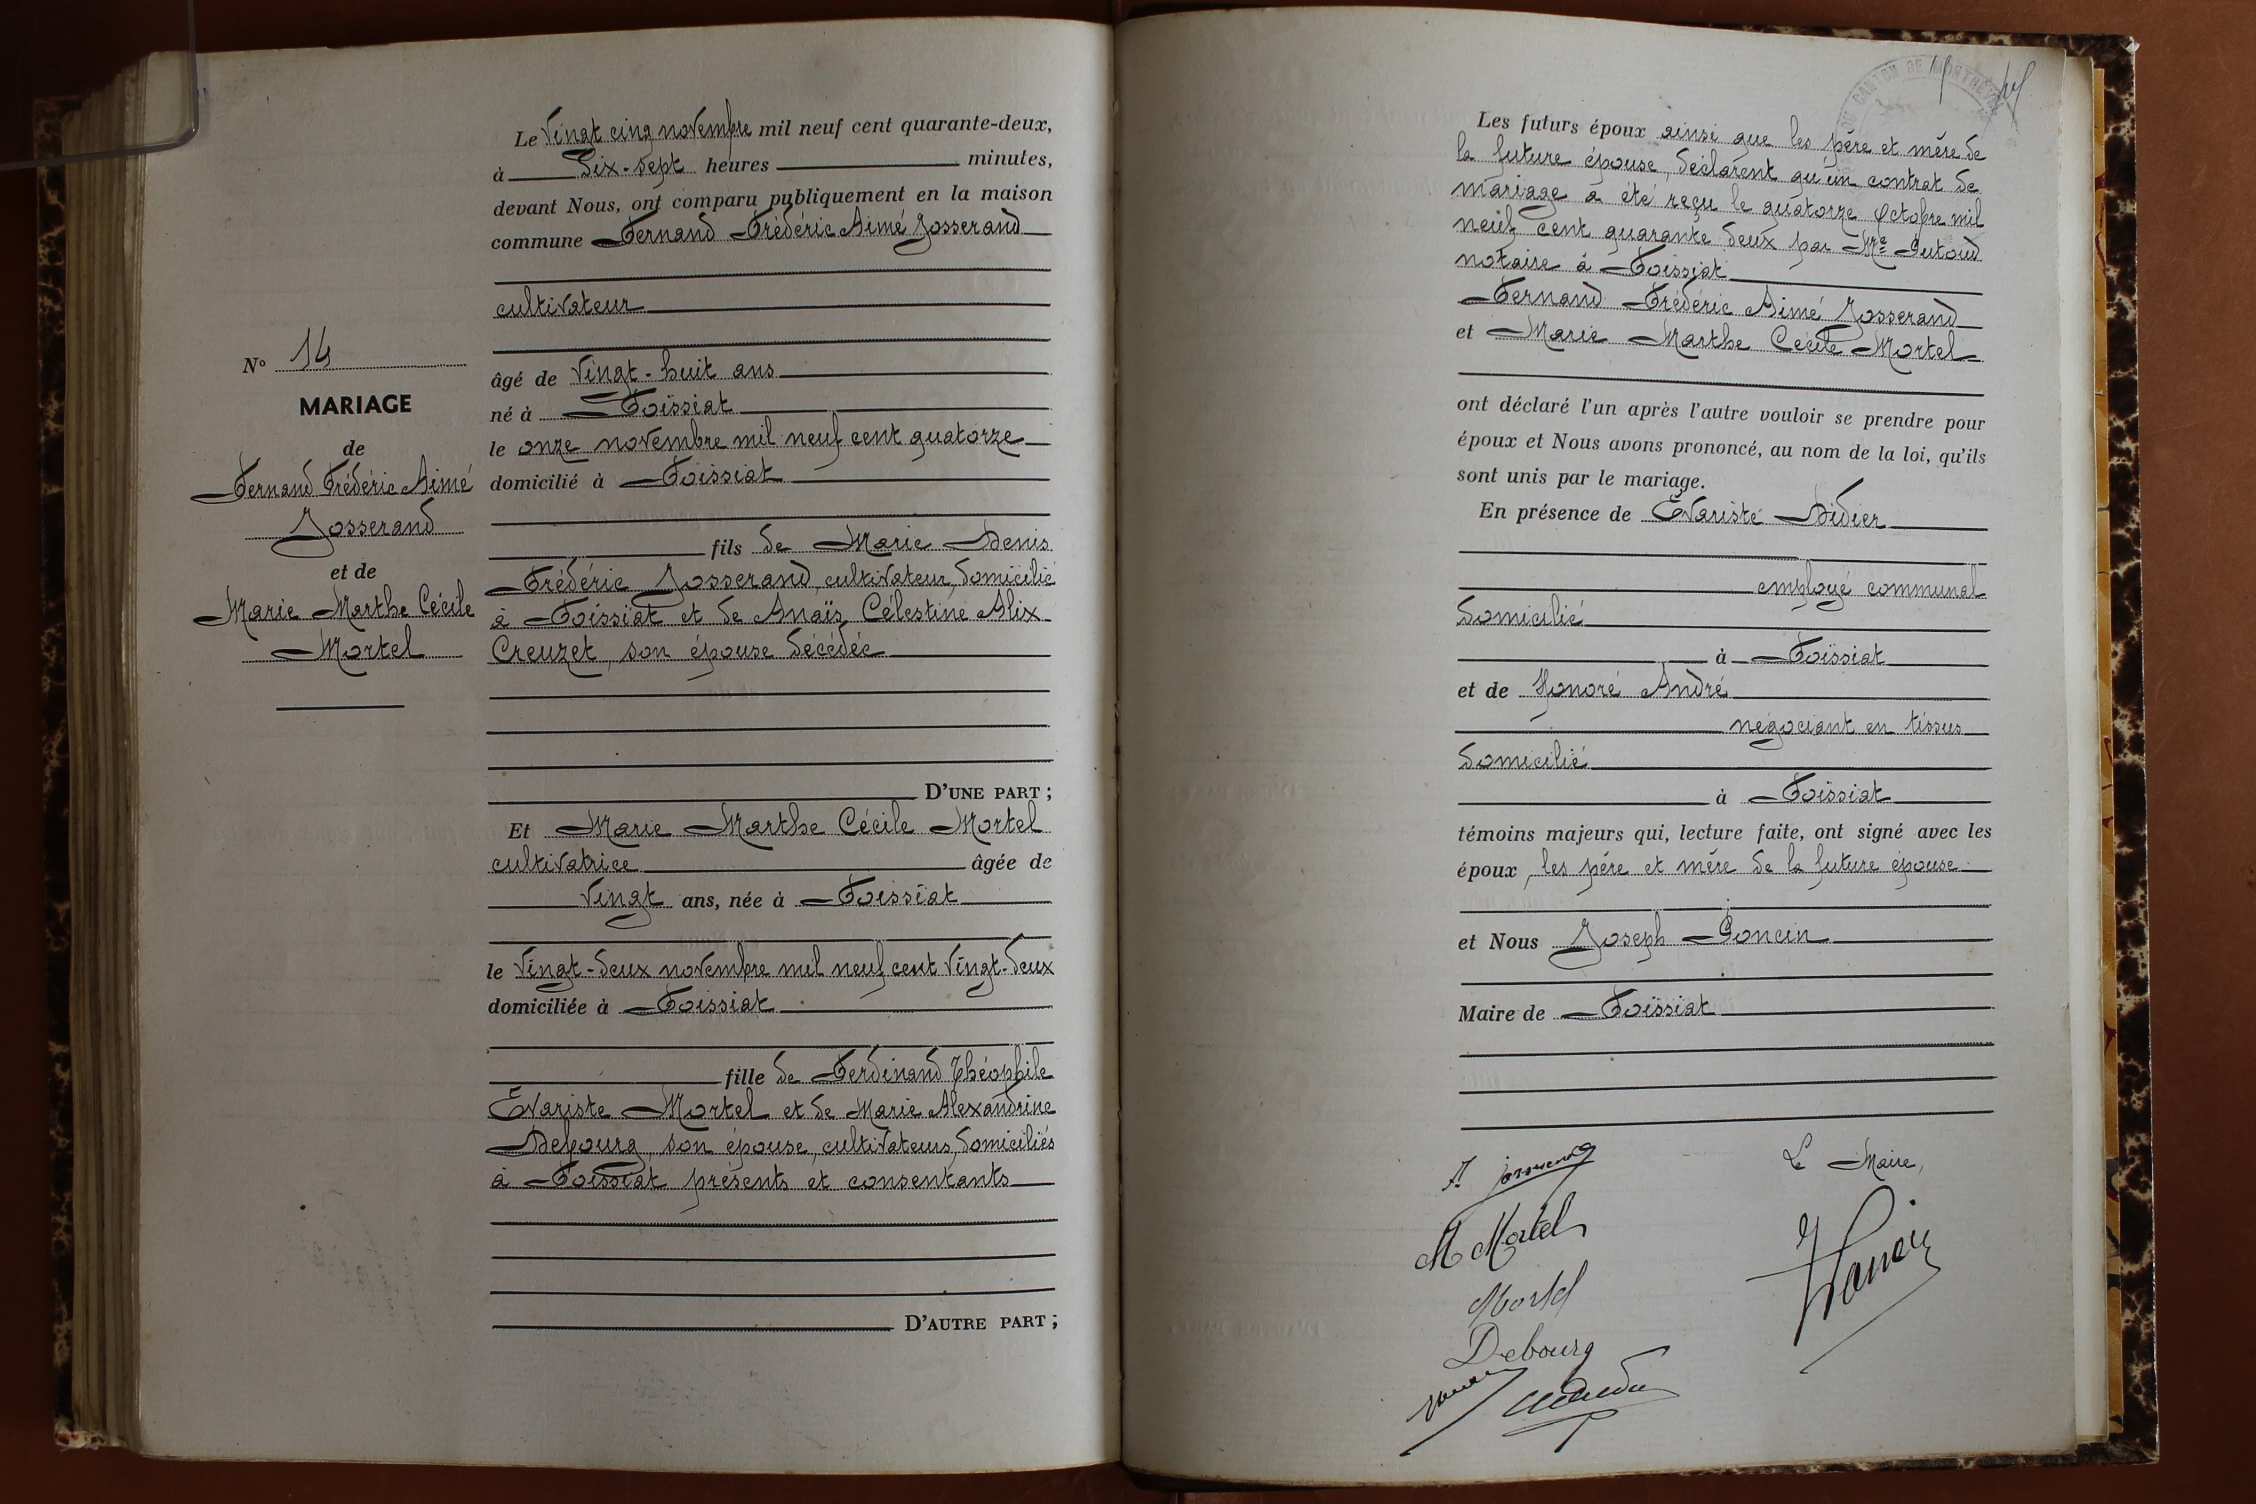 Le Vingt cinq novembre mil neuf cent quarante-deux,
à dix-sept heures minutes,
devant Nous, ont comparu publiquement en la maison
commune Fernand Frédéric Aimé Josserand
cultivateur
âgé de Vingt-huit ans
né à Foissiat
le onze novembre mil neuf cent quatorze
domicilié à Foissiat
fils de Marie Denis
Frédéric Josserand, cultivateur, domicilié
à Foissiat et de Anaïs, Célestine Alix
Creuzet, son épouse décédée
D'UNE PART ;
Et Marie Marthe Cécile Mortel
cultivatrice âgée de
Vingt ans, née à Foissiat
le Vingt-deux novembre mil neuf cent Vingt-deux
domiciliée à Foissiat
fille de Ferdinand Théophile
Evariste Mortel et de Marie Alexandrine
Debourg, son épouse, cultivateurs, domiciliés
à Foissiat présents et consentants
D'AUTRE PART ;
N° 14
MARIAGE
de
Fernand Frédéric Aimé
Josserand
et de
Marie Marthe Cécile
Mortel
CANTON DE MONTREVEL
Les futurs époux ainsi que les père et mère de
la future épouse, déclarent qu'un contrat de
mariage a été reçu le quatorze Octobre mil
neuf cent quarante deux par Mre Dutoud
notaire à Foissiat
Fernand Frédéric Aimé Josserand
et Marie Marthe Cécile Mortel
ont déclaré l'un après l'autre vouloir se prendre pour
époux et Nous avons prononcé, au nom de la loi, qu'ils
sont unis par le mariage.
En présence de Evariste Didier
employé communal
domicilié
à Foissiat
et de Honoré André
négociant en tissus
domicilié
à Foissiat
témoins majeurs qui, lecture faite, ont signé avec les
époux, les père et mère de la future épouse
et Nous Joseph Poncin
Maire de Foissiat
Le Maire,
M Mortel
Mortel
Debourg